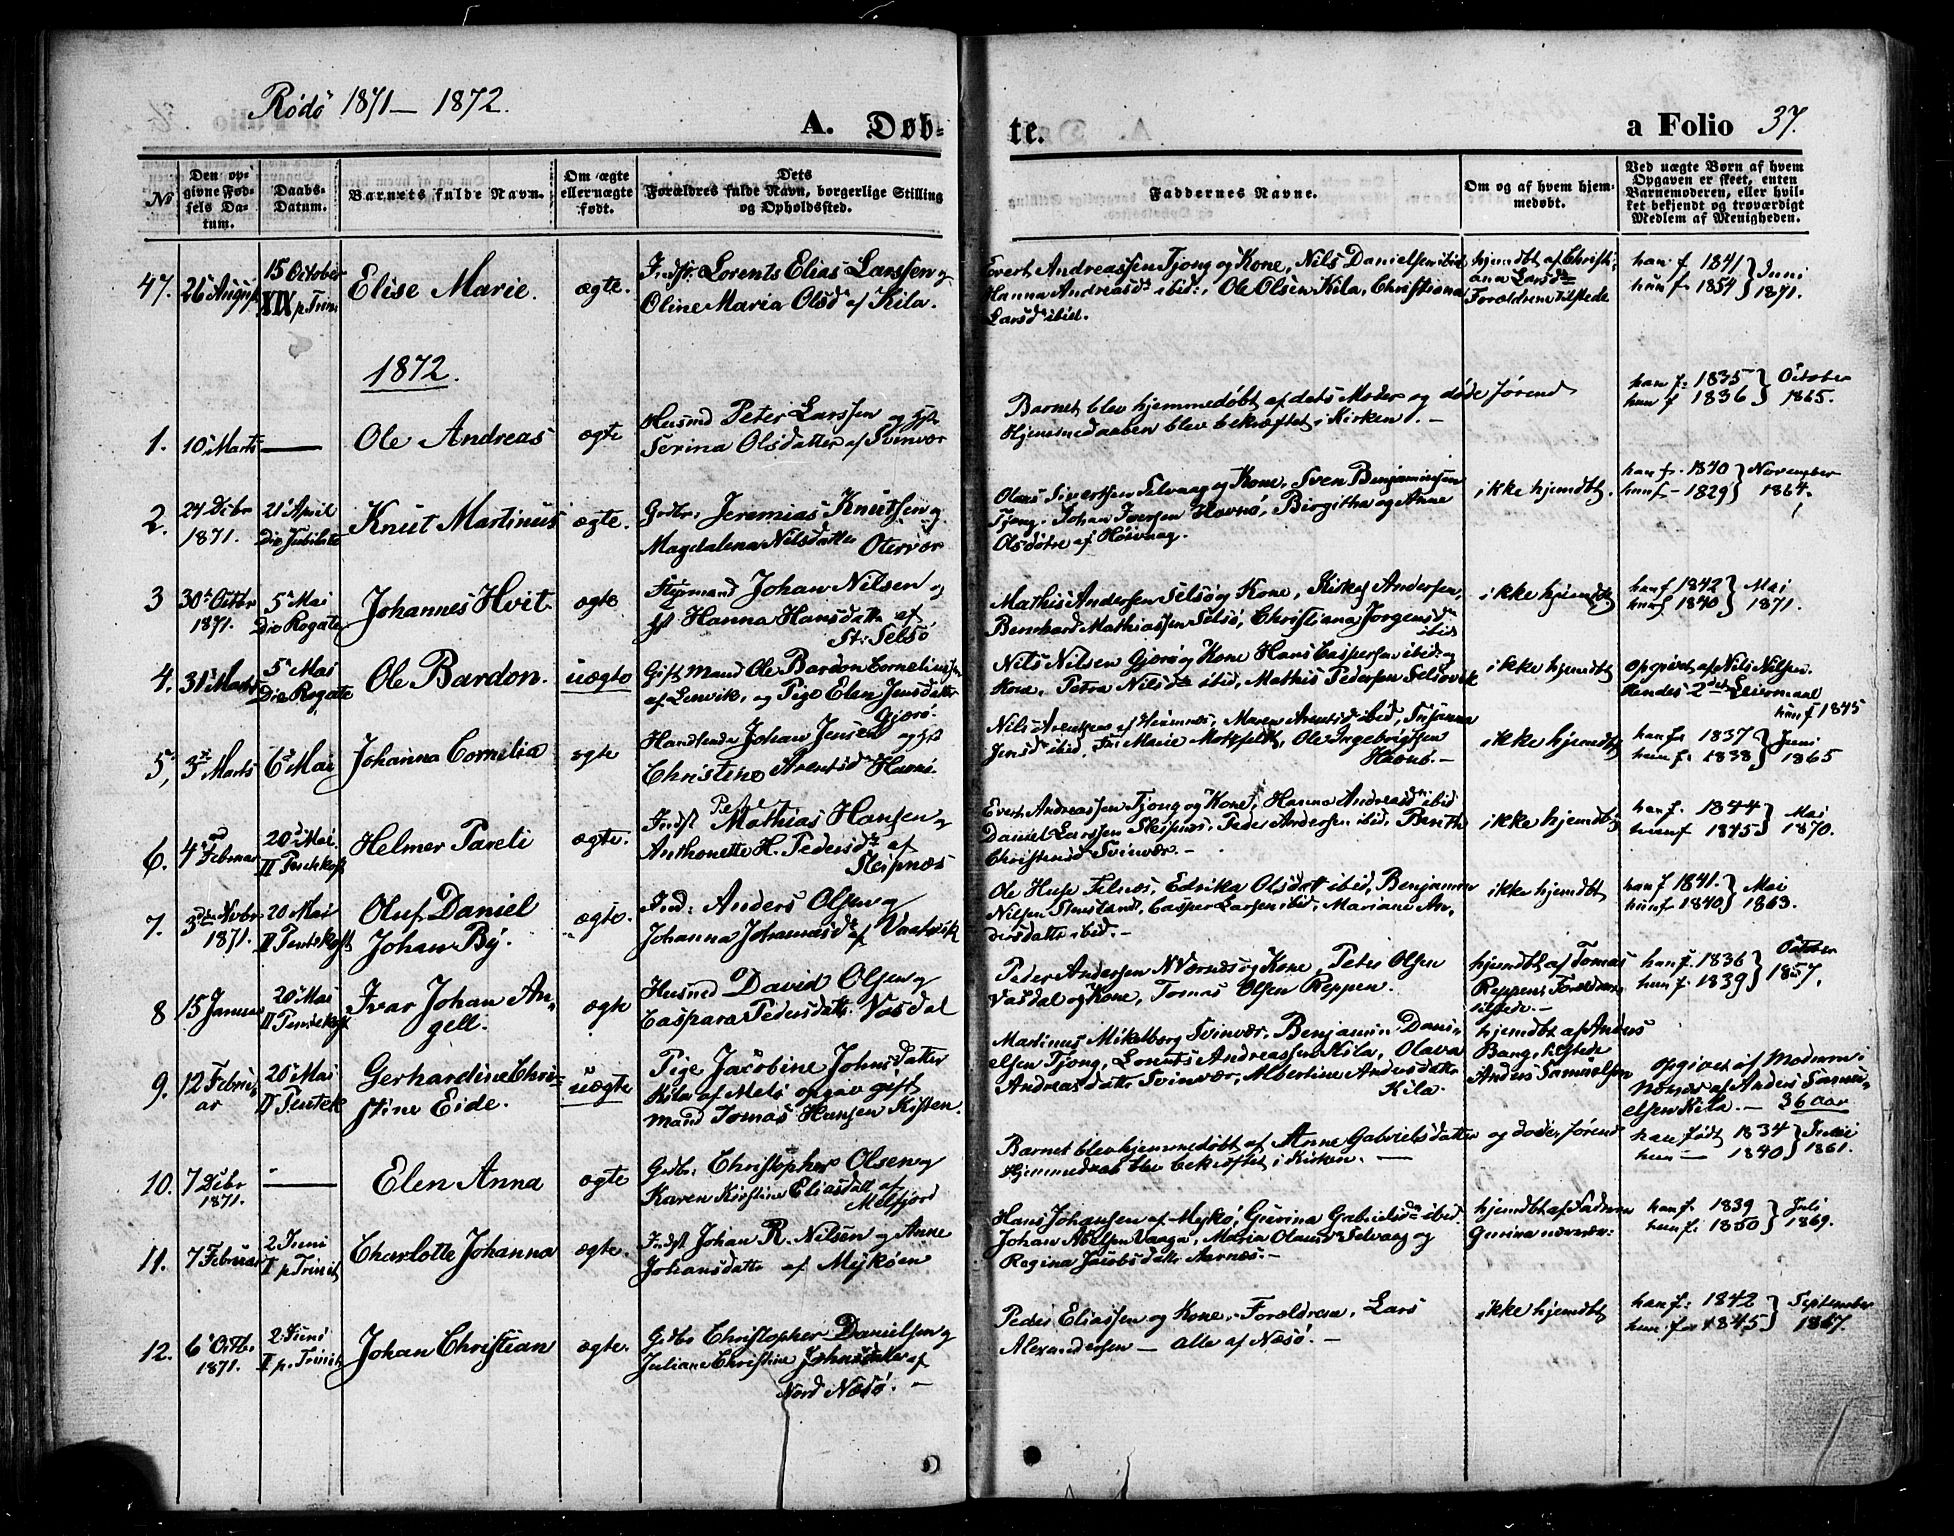 Rödö 1871–1872.
A. Døb=
te.
a Folio 37.
№
Den op-
givne Fød-
sels Da-
tum.
Daabs-
Datum.
Barnets fulde Navn.
Om ægte
eller uægte
født.
Dets
Forældres fulde Navn, borgerlige Stilling
og Opholdssted.
Faddernes Navne.
Om og af hvem hjem-
medøbt.
Ved uægte Børn af hvem
Opgaven er skeet, enten
Barnemoderen, eller hvil-
ket bekjendt og troværdigt
Medlem af Menigheden.
47.
26 August
15 October
XIX p. Trini
Elise Marie.
ægte.
Indstr. Lorents Elias Larssen og
Oline Maria Olsd af Kila.
Evert Andreassen Tjong og Kone, Nils Danielsen ibid
Hanna Andreasd ibid:, Ole Olsen Kila, Christiana
Larsd ibid.
hjemdbt af Christi-
ana Larsd
Forældrene tilstede
han f 1841 } Juni
hun f 1854 } 1871.
1872.
1.
10 Marts
—
Ole Andreas
ægte
Husmd Peter Larssen og
Serina Olsdatter af Svinvær
Barnet blev hjemmedøbt af dets Moder og døde førend
Hjemmedaaben blev bekræftet i Kirken. –
han f: 1835 } October
hun f 1836 } 1865.
2.
24 Dcbr
1871.
21 April
Do Jubilate
Knut Martinus
ægte.
Grdbr. Jeremias Knutsen og
Magdalena Nilsdatter Otervær
Olaus Sivertsen Selvaag og Kone, Sven Benjaminsen
Tjong. Johan Iversen Havnö, Birgitha og Anne
Olsdøtre af Höivaag.
ikke hjemdbt.
han f. 1840 } November
hun f – 1829 } 1864.
3
30 Octbr
1871.
5 Mai
Do Rogate
Johannes Hvit
ægte
Styrmand Johan Nilsen og
Hanna Hansdatter af
St: Selsö
Mathis Andersen Selsö og Kone, Andersen,
Bernhard Mathiassen Selsö, Christiana Jörgensd
ibid
ikke hjemdbt
han f 1842 } Mai
hun f 1840 } 1871.
4.
31 Marts
5 Mai
Do Rogate
Ole Bardon.
uægte
Gift Mand Ole Bardon Corneliussen
af Lenvik, og Pige Elen Jensdatter
Gjerö.
Nils Nilsen Gjerö og Kone Hans Caspersen ibid og
Kone, Petra Nilsd ibid, Mathis Pedersen Selsövik
ikke hjemdbt
Opgivet af Nils Nilsen.
Hendes 2det Leiermaal
hun f 1845
5,
3 Marts
6 Mai
Johanna Cornelia
ægte
Handlende Johan Jensen og
Christine Arentsd Havnö.
Nils Arentsen af Hemnæs, Maren Arentsd ibid, Susanna
Jensd ibid, Fr. Marie Motzfeldt, Ole Ingebrigtsen
Havnö. –
ikke hjemdbt
han fr 1837 } Juni
hun f. 1838 } 1865
6.
4 Februar
20 Mai.
II Pentekost
Helmer Pareli
ægte.
Peder
Indst Mathias Hansen og
Anthonette H. Pedersd af
Sleipnæs
Evert Andreassen Tjong og Kone, Hanna Andreasd ibid
Daniel Larssen Sleipnæs. Peder Andersen ibid, Berith
Christensd Svinvær. –
ikke hjemdbt
han f. 1844 } Mai
hun f 1845 } 1870.
7.
3 Novbr
1871.
20 Mai
II Pentekost
Oluf Daniel
Johan By.
ægte.
Ind: Anders Olsen og
Johanna Johannesd af Vaatvik
Ole Hup Selnæs, Edrika Olsdat ibid, Benjamin
Nilsen Stensland, Casper Larsen ibid, Mariane An,
dersdatter ibid. –
ikke hjemdbt
han f 1841. } Mai
hun f 1840 } 1863.
8
15 Januar
20 Mai
II Pentekost
Ivar Johan An-
gell.
ægte
Husmd David Olsen og
Caspara Pedersdatt. Væsdal
Peder Andersen N Værnæs og Kone, Peter Olsen
Væsdal og Kone, Tomas Olsen Reppen.
hjemdbt af Tomas
Reppen, Forældrene
tilstede. –
han f. 1836 } October
hun f. 1839 } 1857.
9.
12 Febru-
ar
20 Mai
II Pentek
Gerhardine Chri-
stine Eide.
uægte
Pige Jacobine Johnsdatter
Kila af Melö opgav gift
mand Tomas Hansen Kisten.
Martinus Mikelborg Svinvær, Benjamin Dani-
elsen Tjong, Lorents Andreassen Kila, Olava
Andreasdatter Svinvær, Albertine Andersdatter
Kila.
hjemdbt af Anders
Bang, tilstede
Anders Samuelsen
Opgivet af Moderen i
Nærvær af Anders Samu-
elsen Kila. – 36 aar
10.
7 Dcbr
1871.
—
Elen Anna
ægte
Grdbr: Christopher Olsen og
Karen Kirstine Eliasdatt af
Melfjord
Barnet blev hjemmedøbt af Anne Gabrielsdatter og döde förend
Hjemmedaab blev bekræftet i Kirken. —
han født 1834 } Juni
hun — 1840 } 1861.
11.
7 Februar
2 Juni
I p Trinit
Charlotte Johanna
ægte.
Indst Johan R. Nilsen og Anne
Johansdatter af Mykøen
Hans Johansen af Mykö, Gurina Gabrielsd ibid.
Johan Abelsen Vaaga, Maria Olausd Selvaag og
Regina Jacobsdatter Aarnæs. –
hjemdbt af Faderen
Gurina nærvær:
han f. 1839 } Juli
hun f. 1850 } 1869.
12.
6 Octb.
1871.
2 Juni
I p. Trinit
Johan Christian
ægte.
Grdbr Christopher Danielsen og
Juliane Christine Johnsdatter af
Nord Næsö. –
Peder Eliassen og Kone, Forældrene, Lars
Alexandersen — alle af Næsö. –
ikke hjemdbt
han f: 1842 } September
hun f. 1845 } 1867.